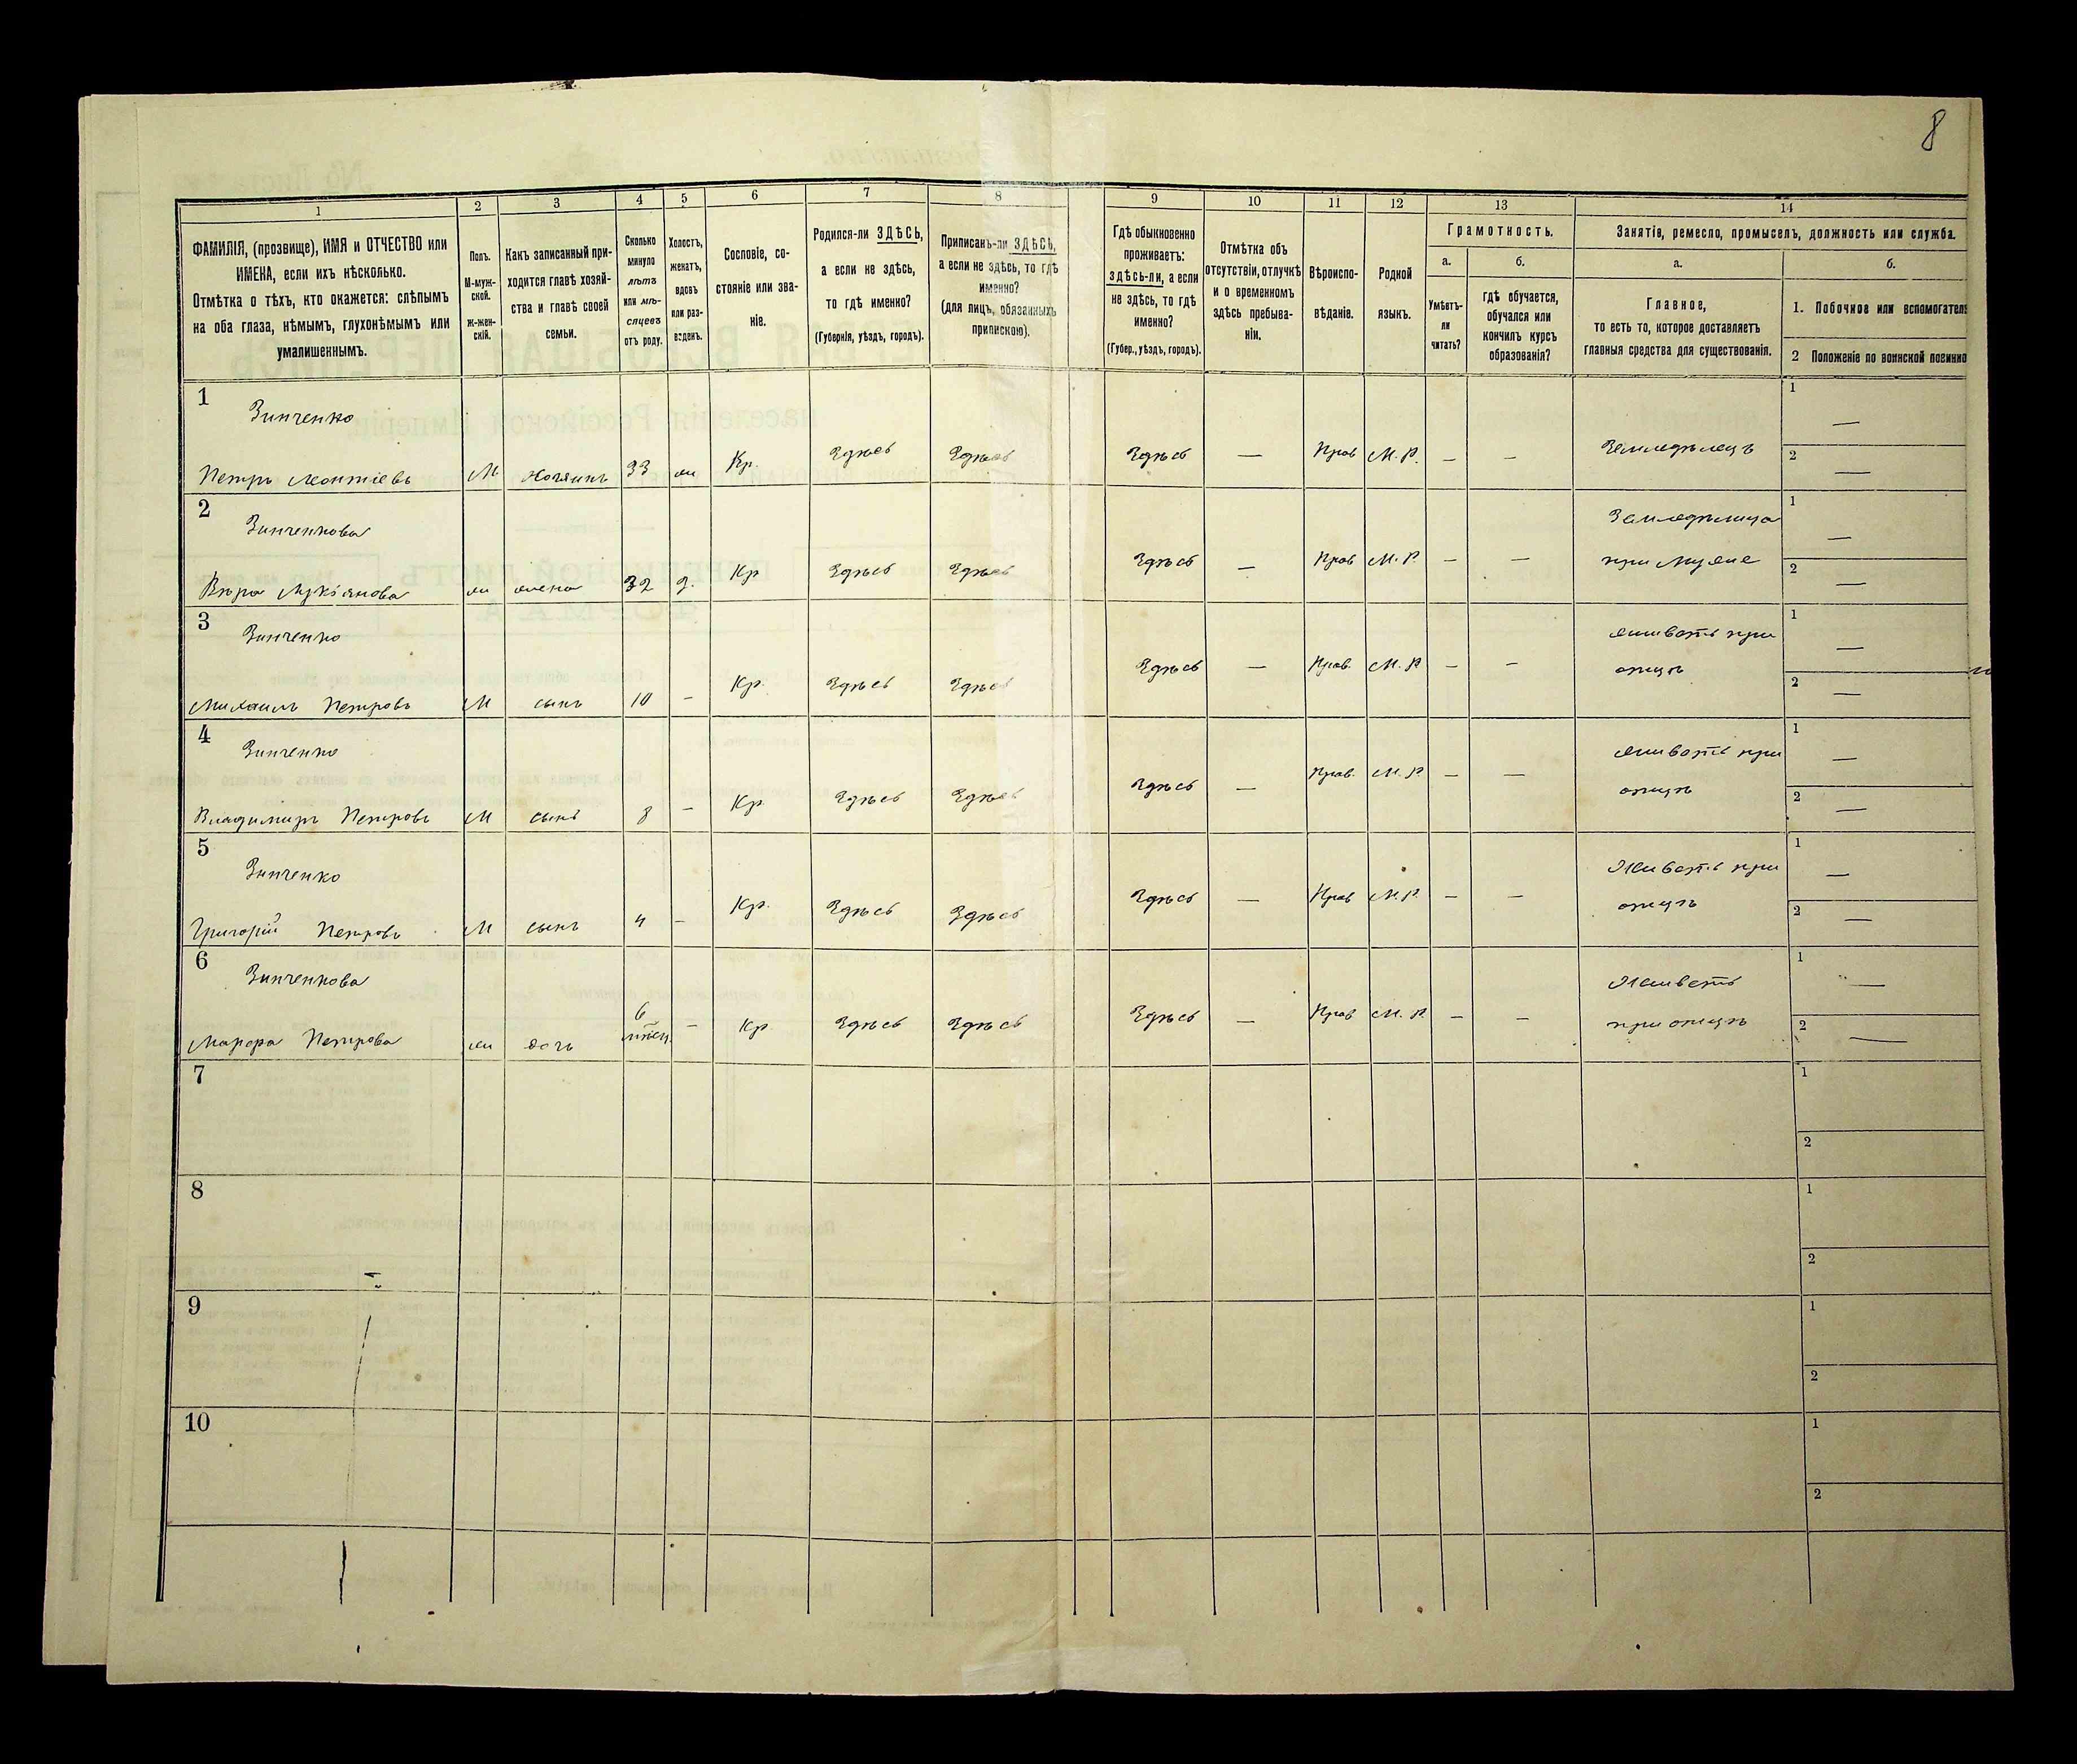 8
1
2
3
4
5
6
7
8
9
10
11
12
13
14
ФАМИЛІЯ, (прозвище), ИМЯ и ОТЧЕСТВО или
ИМЕНА, если ихъ нѣсколько.
Отмѣтка о тѣхъ, кто окажется: слѣпымъ
на оба глаза, нѣмымъ, глухонѣмымъ или
умалишеннымъ.
Полъ.
М-муж-
ской.
Ж-жен-
скій.
Какъ записанный при-
ходится главѣ хозяй-
ства и главѣ своей
семьи.
Сколько
минуло
лѣтъ
или мѣ-
сяцевъ
отъ роду.
Холостъ,
женатъ,
вдовъ
или раз-
веденъ.
Сословіе, со-
стояніе или зва-
ніе.
Родился-ли ЗДѢСЬ,
а если не здѣсь,
то гдѣ именно?
(Губернія, уѣздъ, городъ).
Приписанъ-ли ЗДѢСЬ,
а если не здѣсь, то гдѣ
именно?
(для лицъ, обязанныхъ
припискою).
Гдѣ обыкновенно
проживаетъ:
здѣсь-ли, а если
не здѣсь, то гдѣ
именно?
(Губер., уѣздъ, городъ).
Отмѣтка объ
отсутствіи, отлучкѣ
и о временномъ
здѣсь пребыва-
ніи.
Вѣроиспо-
вѣданіе.
Родной
языкъ.
Грамотность.
а.
Умѣетъ-
ли
читать?
б.
гдѣ обучается,
обучался или
кончилъ курсъ
образованія?
Занятія, ремесло, промыселъ, должность или служба.
а.
Главное,
то есть то, которое доставляетъ
главныя средства для существованія.
б.
1. Побочное или вспомогател
2 Положеніе по воинской повинно
1
Зинченко
Петръ Леонтіевъ
М
Хозяинъ
33
ж
Кр.
Здѣсь
Здѣсь
Здѣсь
—
Прав
М. Р.
—
—
Земледѣлецъ
1 —
2 —
2
Зинченкова
Вѣра Лукіянова
ж
жена
32
з.
Кр
Здѣсь
Здѣсь
Здѣсь
—
Прав
М. Р.
—
—
Земледѣлица
при мужѣ
1 —
2 —
3
Зинченко
Михаилъ Петровъ
М
сынъ
10
—
Кр.
Здѣсь
Здѣсь
Здѣсь
—
Прав.
М. Р
—
—
живетъ при
отцѣ
1 —
2 —
4
Зинченко
Владимиръ Петровъ
М
сынъ
8
—
Кр
Здѣсь
Здѣсь
Здѣсь
—
Прав.
М. Р
—
—
живетъ при
отцѣ
1 —
2 —
5
Зинченко
Григорій Петровъ
М
сынъ
4
—
Кр.
Здѣсь
Здѣсь
Здѣсь
—
Прав
М. Р.
—
—
Живетъ при
отцѣ
1 —
2 —
6
Зинченкова
Петрова
ж
дочь
6
мѣсяц.
—
Кр
Здѣсь
Здѣсь
Здѣсь
—
Прав
М. Р.
—
—
Живетъ
при отцѣ
1 —
2 —
7
1
2
8
1
2
9
1
2
10
1
2